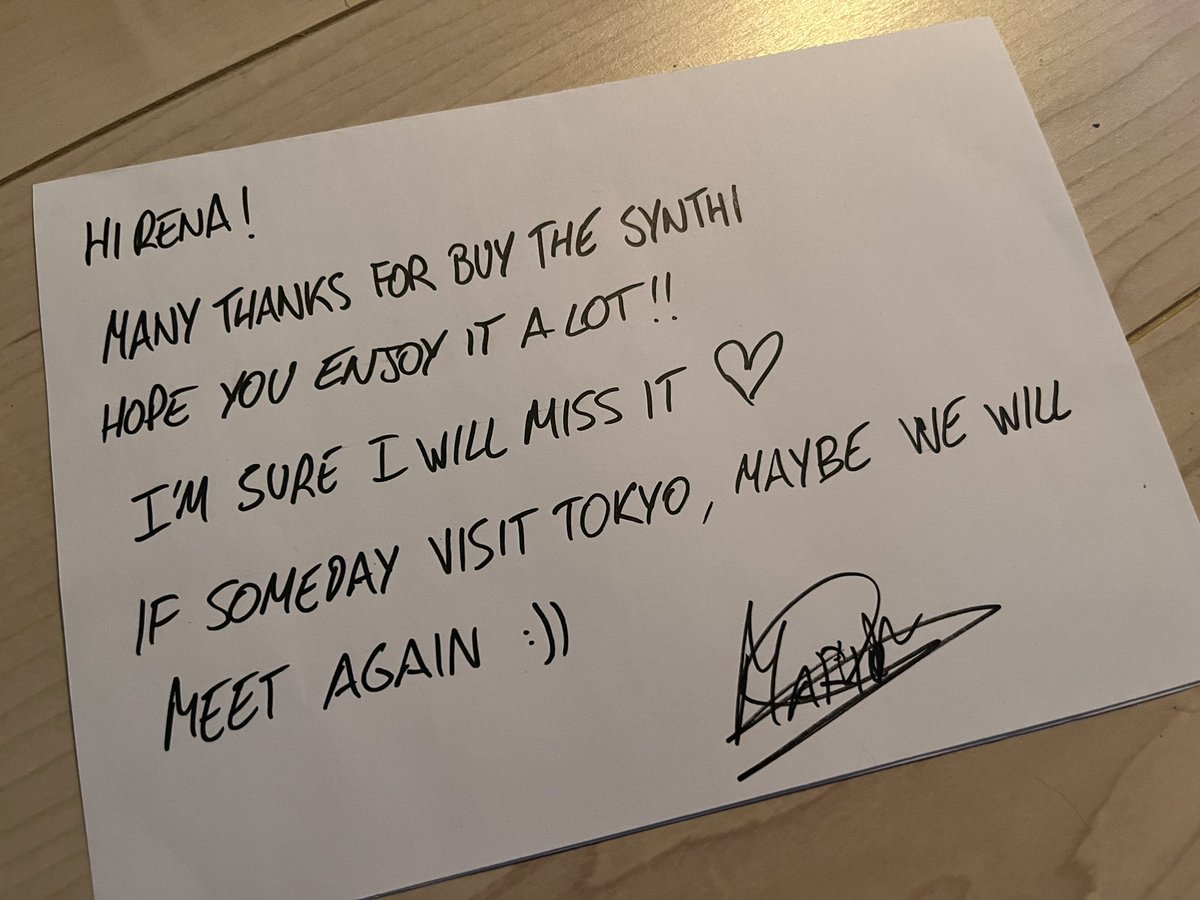 HI RENA!
MANY THANKS FOR BUY THE SYNTHI
HOPE YOU ENJOY IT A LOT!!
I'M SURE I WILL MISS IT ♡
IF SOMEDAY VISIT TOKYO, MAYBE WE WILL
MEET AGAIN :))